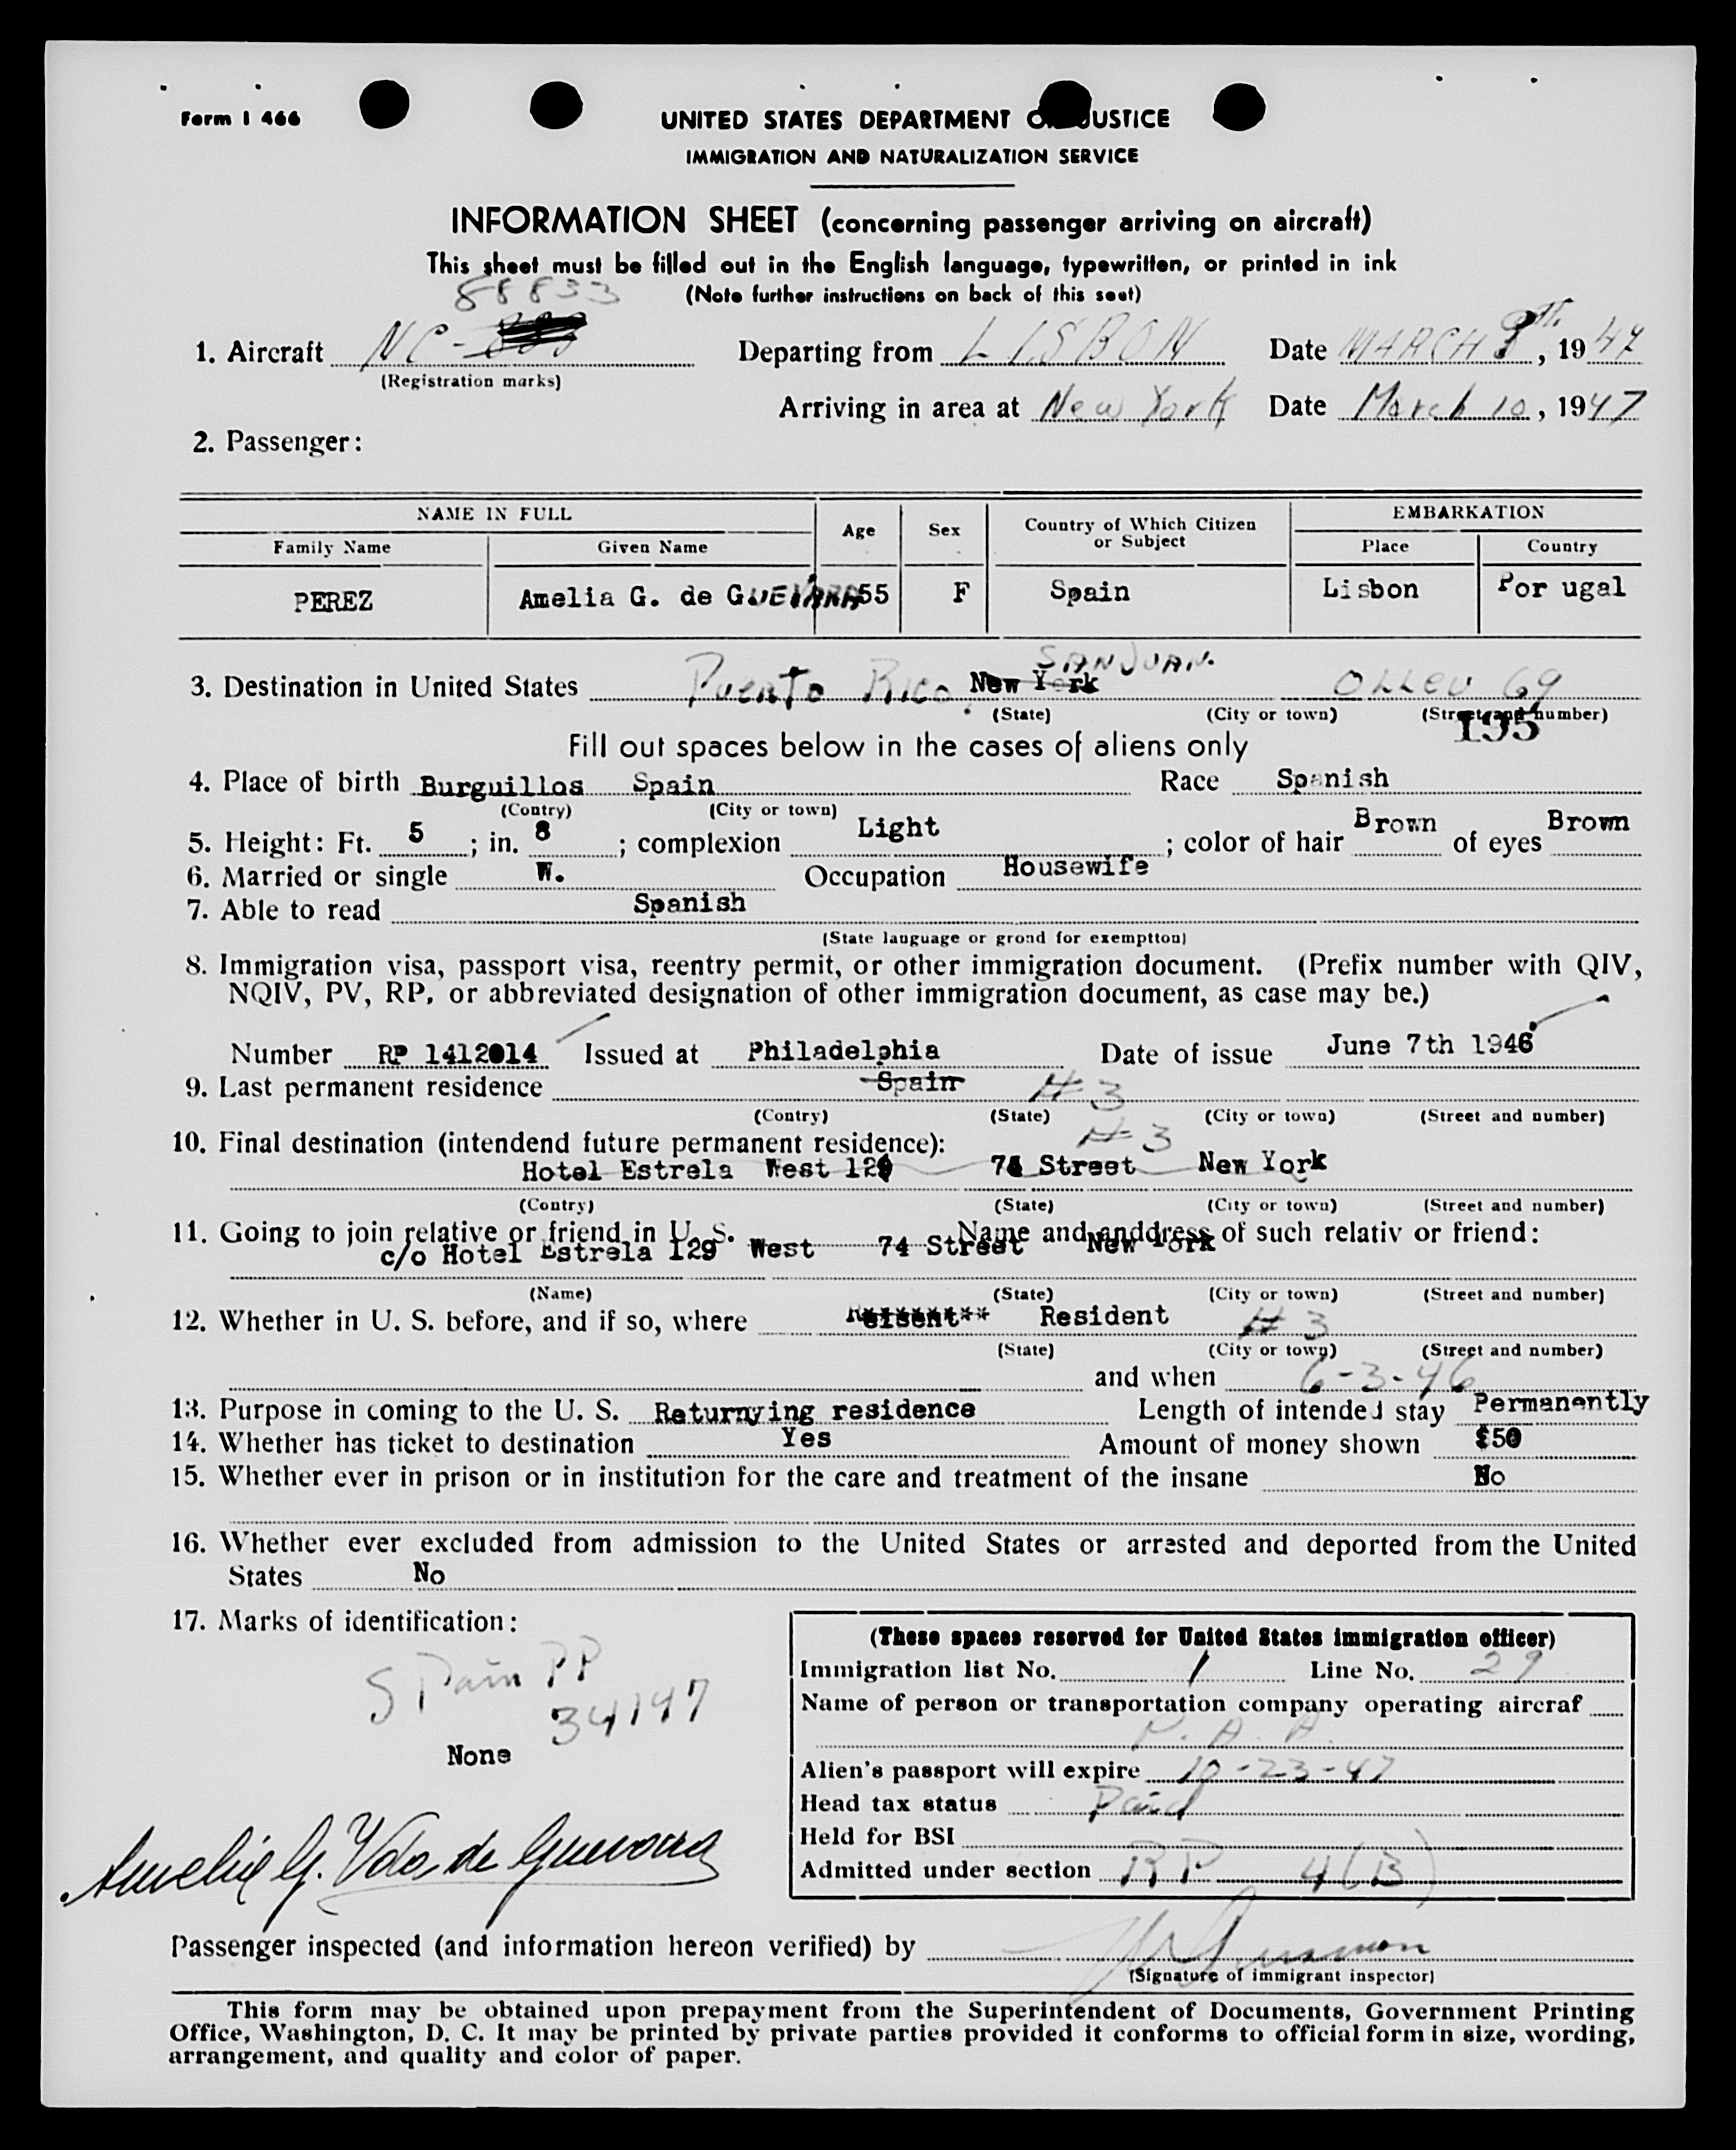 Form I 466
UNITED STATES DEPARTMENT OF JUSTICE
IMMIGRATION AND NATURALIZATION SERVICE
INFORMATION SHEET (concerning passenger arriving on aircraft)
This sheet must be filled out in the English language, typewritten, or printed in ink
88833 (Note further instructions on back of this seet)
1. Aircraft NC- Departing from LISBON Date MARCH 9th, 1947
(Registration marks)
Arriving in area at New York Date March 10, 1947
2. Passenger:
NAME IN FULL Age Sex Country of Which Citizen or Subject EMBARKATION
Family Name Given Name Place Country
PEREZ Amelia G. de GUEVARA 55 F Spain Lisbon Por ugal
SAN JUAN.
3. Destination in United States Puerto Rico, New York OLLEU 69
(State) (City or town) (Street and number)
195
Fill out spaces below in the cases of aliens only
4. Place of birth Burguillos Spain Race Spanish
(Contry) (City or town)
5. Height: Ft. 5 ; in. 8 ; complexion Light ; color of hair Brown of eyes Brown
6. Married or single W. Occupation Housewife
7. Able to read Spanish
(State lauguage or grond for exemptton)
8. Immigration visa, passport visa, reentry permit, or other immigration document. (Prefix number with QIV,
NQIV, PV, RP, or abbreviated designation of other immigration document, as case may be.)
Number RP 1412014 Issued at Philadelphia Date of issue June 7th 1946
9. Last permanent residence Spain # 3
(Contry) (State) (City or town) (Street and number)
10. Final destination (intendend future permanent residence): # 3
Hotel Estrela West 129 74 Street New York
(Contry) (State) (City or town) (Street and number)
11. Going to join relative or friend in U. S. Name and anddress of such relativ or friend:
c/o Hotel Estrela 129 West 74 Street New York
(Name) (State) (City or town) (Street and number)
12. Whether in U. S. before, and if so, where Resident # 3
(State) (City or town) (Street and number)
and when 6-3-46
13. Purpose in coming to the U. S. Returnying residence Length of intended stay Permanently
14. Whether has ticket to destination Yes Amount of money shown $50
15. Whether ever in prison or in institution for the care and treatment of the insane No
16. Whether ever excluded from admission to the United States or arrested and deported from the United
States No
17. Marks of identification:
Spain PP
34147
None
Amelia G. Vda de Guevara
(These spaces reserved for United States immigration officer)
Immigration list No. 1 Line No. 29
Name of person or transportation company operating aircraf
P. A. A.
Alien's passport will expire 10-23-47
Head tax status Paid
Held for BSI
Admitted under section RP 4(B)
Passenger inspected (and information hereon verified) by
(Signature of immigrant inspector)
This form may be obtained upon prepayment from the Superintendent of Documents, Government Printing
Office, Washington, D. C. It may be printed by private parties provided it conforms to official form in size, wording,
arrangement, and quality and color of paper.